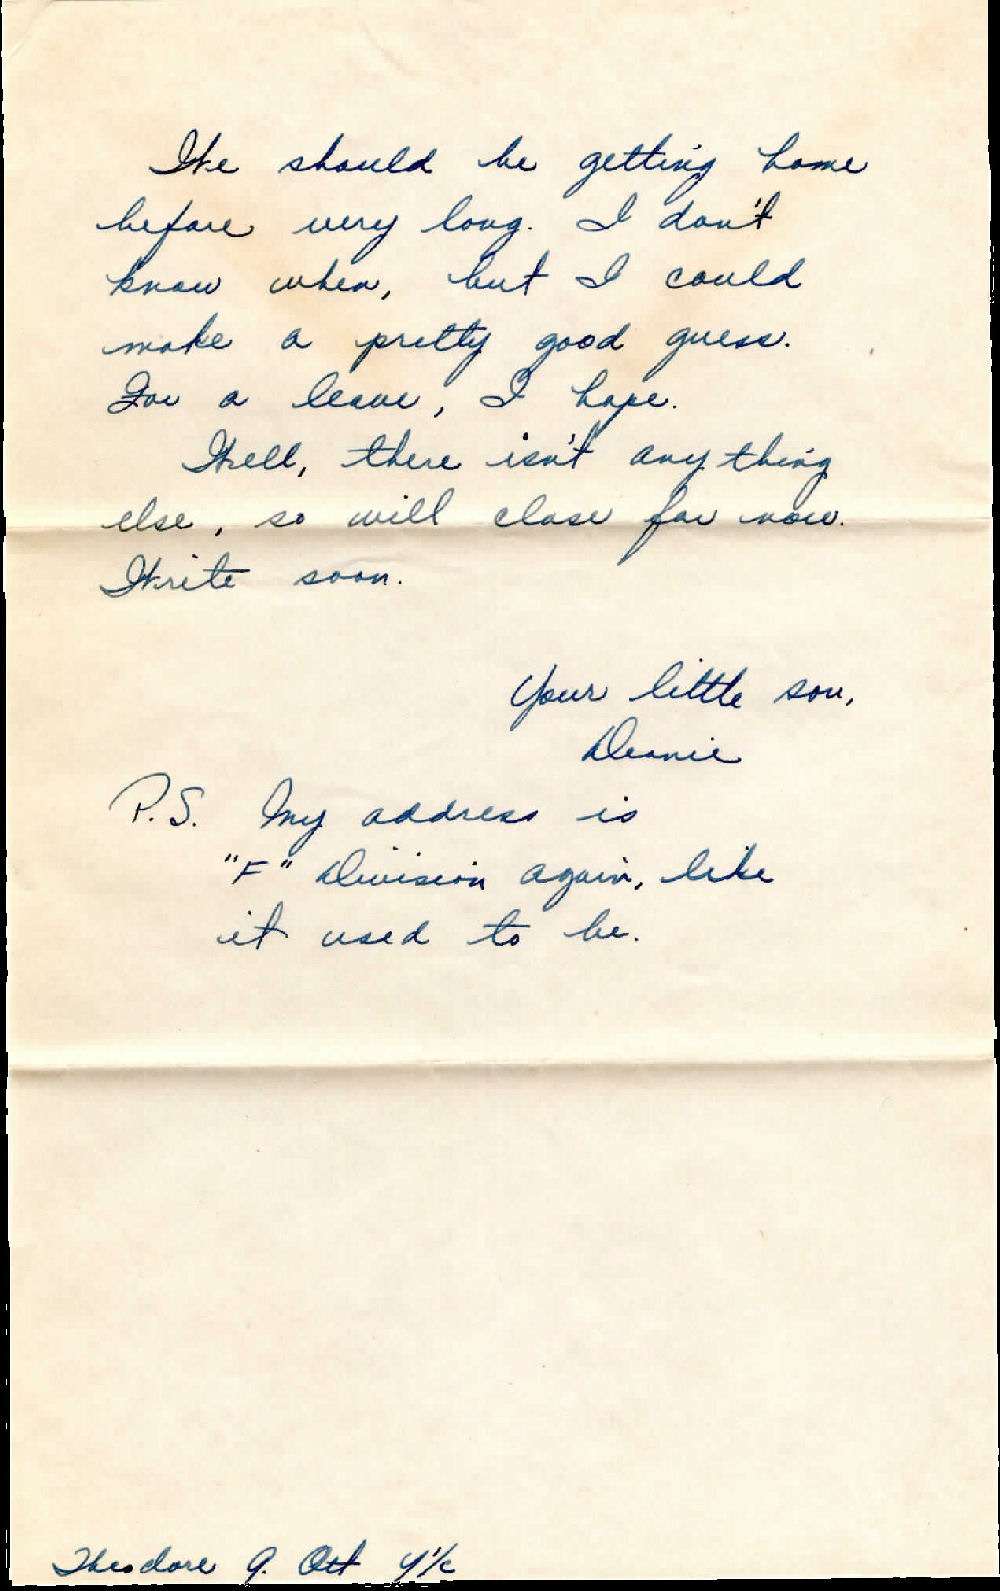 We should be getting home
before very long. I don't
know when, but I could
make a pretty good guess.
For a leave, I hope.
Well, there isn't any thing
else, so will close for now.
Write soon.
Your little son,
Deanie
P.S. My address is
"F" Division again, like
it used to be.
Theodore G. Ott Y1/c